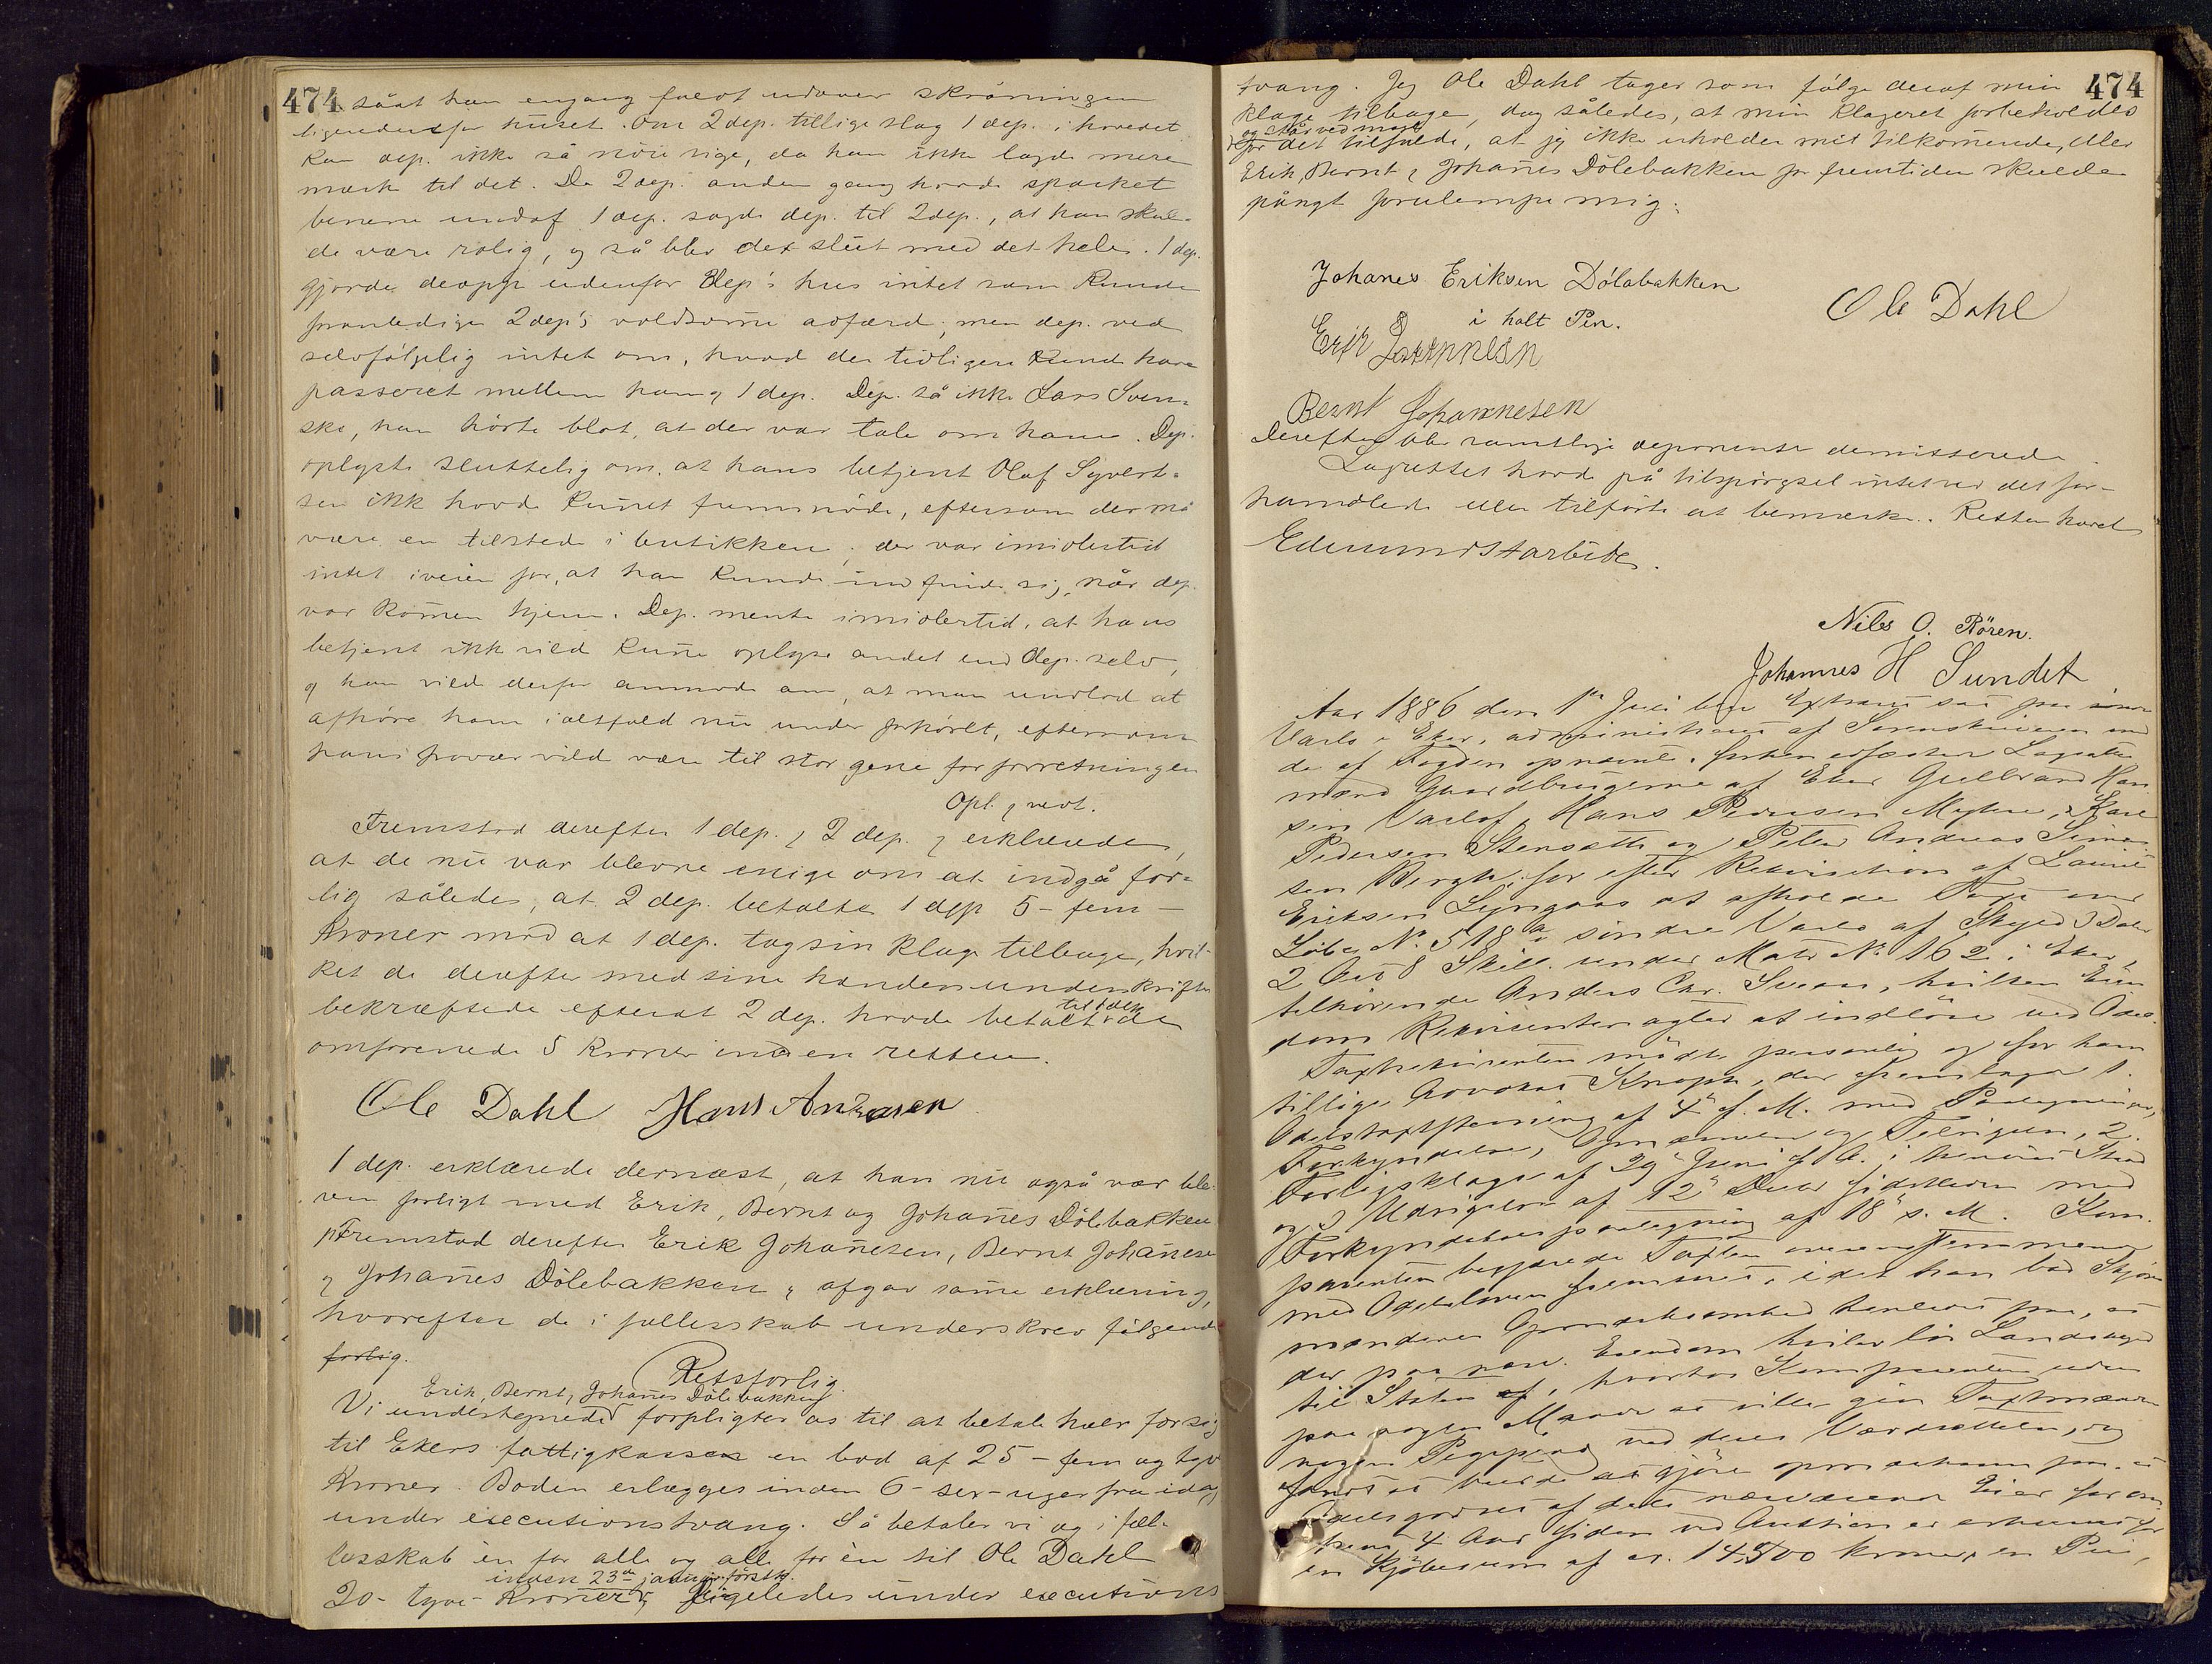 474 såat han engang faldt udover skråningen
ligeudenfor huset. Om 2 dep. tillige slog 1 dep. i hovedet
kan dep. ikke så nöie sige, da han ikke lagde mere
mærke til det. Da 2 dep. anden gang havde sparket
benene undaf 1 dep. sagde dep. til 2 dep., at han skul-
de være rolig, og så blev det slut med det hele. 1 dep.
gjorde deroppe udenfor dep's hus intet som kunde
foranledige 2 dep's voldsomme adfærd; men dep. ved
selvfölgelig intet om, hvad der tidligere kunde have
passeret mellem ham og 1 dep. Dep. så ikke Lars Sven-
ske, han hörte blot, at der var tale om ham. Dep.
oplyste sluttelig om, at hans betjent Olaf Syvert-
sen ikke havde kunnet fremmöde, eftersom der må
være en tilstede i butikken; der var imidlertid
intet iveien for, at han kunde indfinde sig, når dep.
var kommen hjem. Dep. mente imidlertid, at hans
betjent ikke vilde kunne oplyse andet end dep. selv,
og han vilde derfor anmode om, at man undlod at
afhöre ham ialtfald nu under forhöret, eftersom
hans fravær vilde være til stor gene for forretningen
Opl. & vedt.
Fremstod derefter 1 dep. & 2 dep. & erklærede,
at de nu var blevne enige om at indgå for-
lig således, at 2 dep. betalte 1 dep 5 - fem -
kroner mod at 1 dep. tog sin klage tilbage, hvil-
ket de derefter med sine hænders underskrifter
bekræftede efterat 2 dep. havde betalt de
omforenede 5 kroner inden retten.
Ole Dahl Hans Andersen
1 dep. erklærede dernæst, at han nu også var ble-
ven forligt med Erik, Bernt og Johannes Dölebakken
Fremstod derefter Erik Johannesen, Bernt Johannesen
& Johannes Dölebakken & afgav samme erklæring,
hvorefter de i fællesskab underskrev fölgende
forlig.
Retsforlig.
Erik, Bernt, Johannes Dölebakken
Vi undertegnede forpligter os til at betale hver for sig
til Ekers fattigkasse en bod af 25 - fem og tyve
kroner. Boden erlægges inden 6 - sex - uger fra idag
under executionstvang. Så betaler vi og i fæl-
lesskab èn for alle og alle for èn til Ole Dahl
inden 23de januar förstk.
20 - tyve - kroner ligeledes under executions
474
tvang. Jeg Ole Dahl tager som fölge deraf min
klage tilbage, dog således, at min klageret forbeholdes
og står ved magt
for det tilfælde, at jeg ikke erholder mit tilkommende, eller
Erik, Bernt & Johannes Dölebakken for fremtiden skulde
pångt forulempe mig.
Johanes Eriksen Dólabakken
i holt Pen.
Ole Dahl
Erik Johannesn
Bernt Johannesen
Derefter blev samtlige deponenter demitterede.
Lagrettet havde på tilspörgsel intet ved det for-
handlede eller tilförte at bemærke. Retten hævet
Edmund Harbitz.
Nils O. Rören.
Johannes H Sundet
Aar 1886 den 1ste Juli blev Extraret sat paa söndre
Varlo i Eker, administreret af Sorenskriveren med
de af Fogden opnævnte Lagrettes
mænd Gaardbrugerne af Eker Gulbrand Han
sen Varlo, Hans Pedersen Myhre, Karl
Pedersen Stensæth og Peter Andreas Simen-
sen Bergh, for efter Rekvisition af Lauritz
Eriksen Lyngaas at afholde Taxt over
Löbe No. 518a söndre Varlo af Skyld 3 Daler
2 Ort 8 Skill. under Matr No. 162 i Eker,
tilhörende Anders Chr. Sveen, hvilken Eien
dom Rekvirenten agter at indlöse ved Odel.
Taxtrekvirenten mödte personlig og for ham
tillige Advokat Knoph, der fremlagde 1.
Odelstaxtstevning af 4de d. M. med Paategninger,
Forkyndelse, Opnævnelse og Tilsigelse, 2.
Forligsklage af 29 Juni f. A. i henvist Stand
og 3 Udsigelse af 12te Decbr sidstleden med
Forkyndelsespaategning af 18de s. M. Kom-
parenten begjærede Taxten overensstemmende
med Odelsloven fremmet, idet han bad Skjöns
mændenes Opmærksomhed henledet paa, at
der paa nævn. Eiendom hviler Landskyld
til Staten, hvortil Komparenten uden
paa nogen Maade at ville give Taxtmændene
nogen Pegepind ved deres Værdsættelse, dog
fandt at burde gjöre opmærksom paa, at
Odelsgodset af dets nuværende Eier for om-
trent 4 Aar siden ved Auktion er erhvervet for
en Kjöbesum af ca. 14,500 kroner, en Pris,